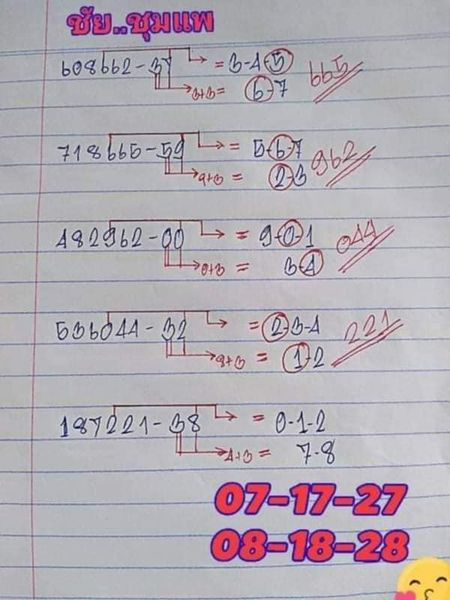 ชัย..ชุมแพ
608662-37 = 3-4-5
3+3= 6-7 665
718665-59 = 5-6-7
9+3= 2-3 962
482962-00 = 9-0-1
0+3= 3-4 044
536044-32 = 2-3-4
8+3= 1-2 221
187221-38 = 0-1-2
4+3= 7-8
07-17-27
08-18-28